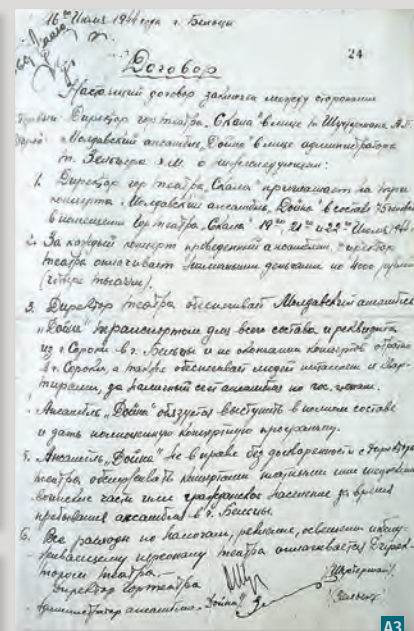 16го Июля 1944 года г. Бельцы
24
Договор
Настоящий договор заключен между сторонами
Директор гор театра „Скала" в лице т.
Молдавский ансамбль „Дойна" в лице администратора
т. Зельцера Я.М. о нижеследующем:
1. Директор гор театра „Скала" приглашает на три
концерта Молдавский ансамбль „Дойна" в составе 75 человек
в помещении Гор театра „Скала" 19го, 21го и 22го Июля 1944 г.
2. За каждый концерт проведенный ансамблем, директор
театра оплачивает наличными деньгами по 4000 рублей
(четыре тысячи).
3. Директор театра обеспечивает Молдавский ансамбль
„Дойна" транспортом для всего состава и реквизита
из г. Сороки в г. Бельцы и по окончании концертов обратно
в г. Сороки, а также обеспечивает людей питанием и квар-
тирами, за наличный счет ансамбля по гос. ценам.
Ансамбль „Дойна" обязуется выступить в полном составе
и дать полноценную концертную программу.
Ансамбль „Дойна" не в праве без договоренности с директором
театра обслуживать концертами
воинские части или гражданское население за время
пребывания ансамбля в г. Бельцы.
6. Все расходы по налогам, рекламе, освещению и обслу-
живающему персоналу театра оплачивается Дирек-
тором театра.
Директор Гортеатра
Администратор ансамбля „Дойна"
A3